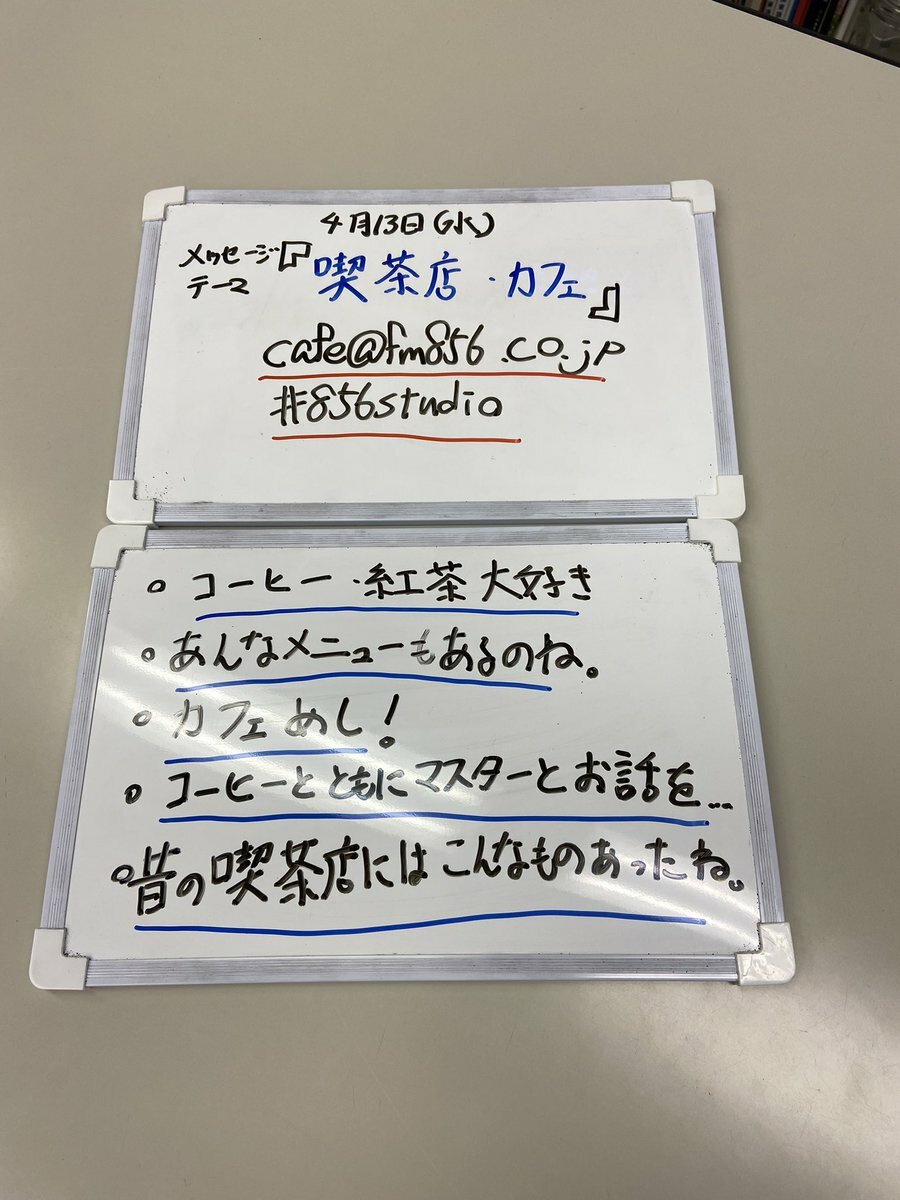 4月13日(水)
メッセージ『喫茶店・カフェ』
テーマ
cafe@fm856.co.jp
#856studio
○ コーヒー・紅茶大好き
○ あんなメニューもあるのね。
○ カフェめし!
○ コーヒーとともにマスターとお話を...
○昔の喫茶店にはこんなものあったね。